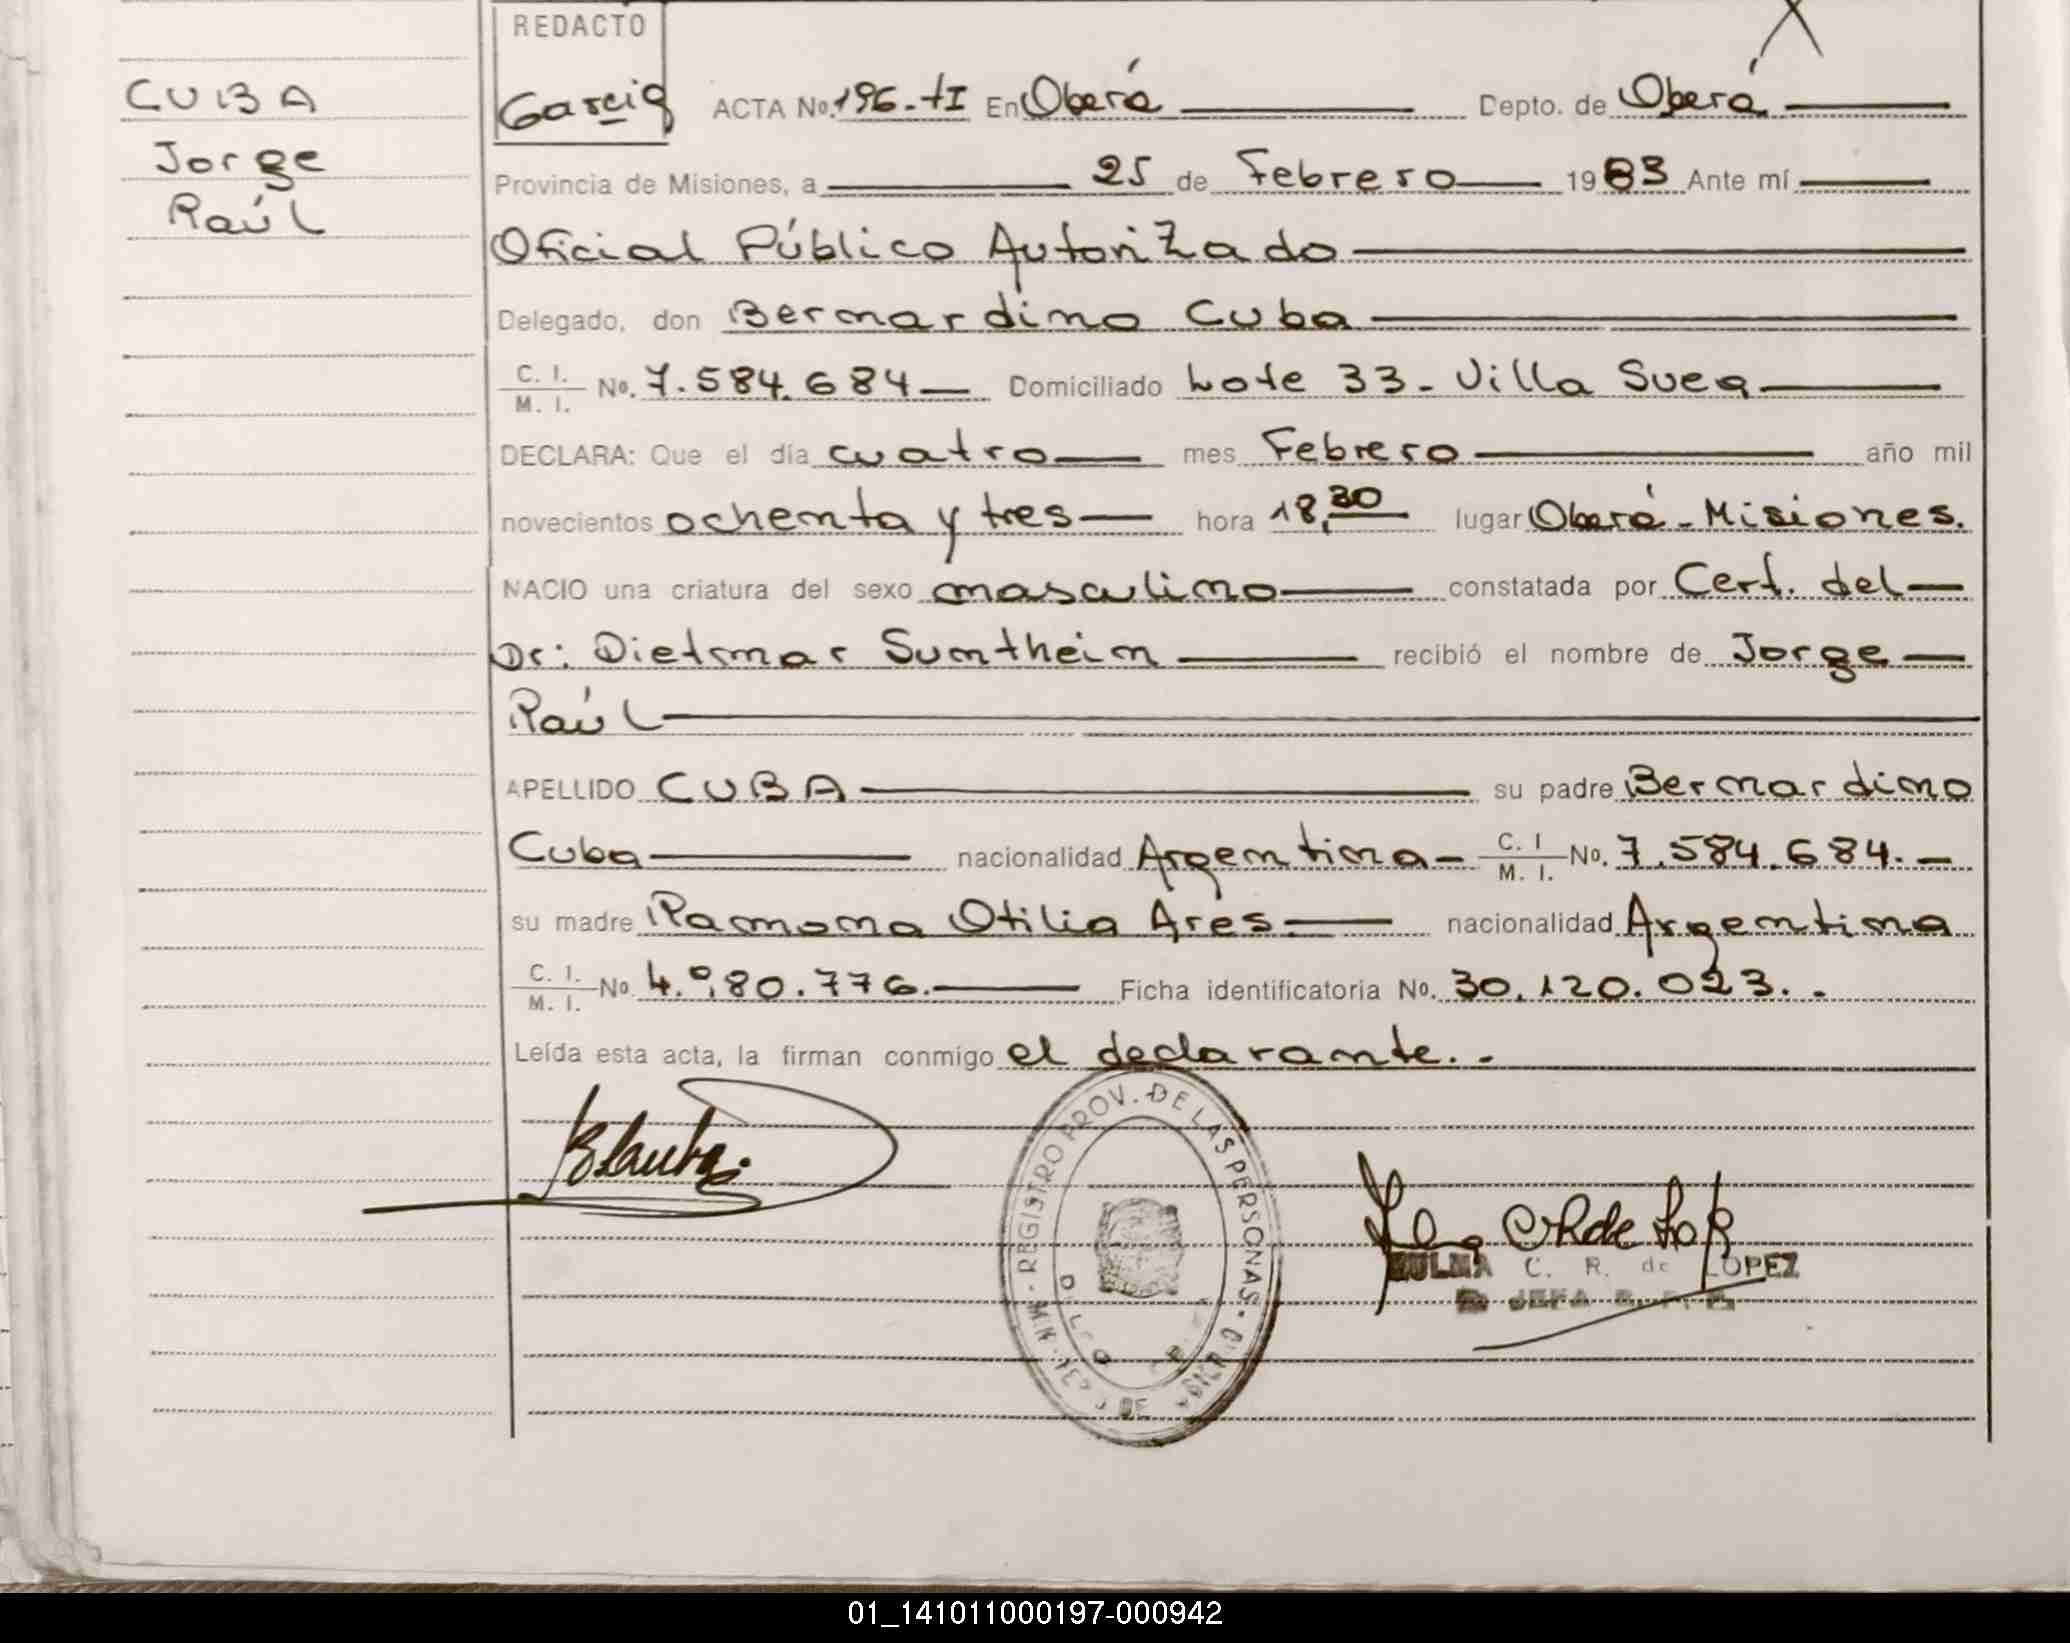 REDACTO
CUBA
Jorge
Raúl
Garcia ACTA No. 196-tI En Oberá Depto. de Oberá
Provincia de Misiones, a 25 de Febrero 1983 Ante mí
Oficial Público Autorizado
Delegado, don Bernardino Cuba
C. I. / M. I. No. 7.584.684 Domiciliado Lote 33 - Villa Svea
DECLARA: Que el día cuatro mes Febrero año mil
novecientos ochenta y tres hora 18,30 lugar Oberá - Misiones.
NACIO una criatura del sexo masculino constatada por Cert. del
Dr: Dietmar Sumthein recibió el nombre de Jorge
Raúl
APELLIDO CUBA su padre Bernardino
Cuba nacionalidad Argentina - C. I / M. I. No. 7.584.684. -
su madre Ramona Otilia Ares nacionalidad Argentina
C. I. / M. I. No 4.980.776. Ficha identificatoria No. 30.120.023. -
Leída esta acta, la firman conmigo el declarante. -
REGISTRO PROV. DE LAS PERSONAS
C. R. de LOPEZ
JEFA
01_141011000197-000942